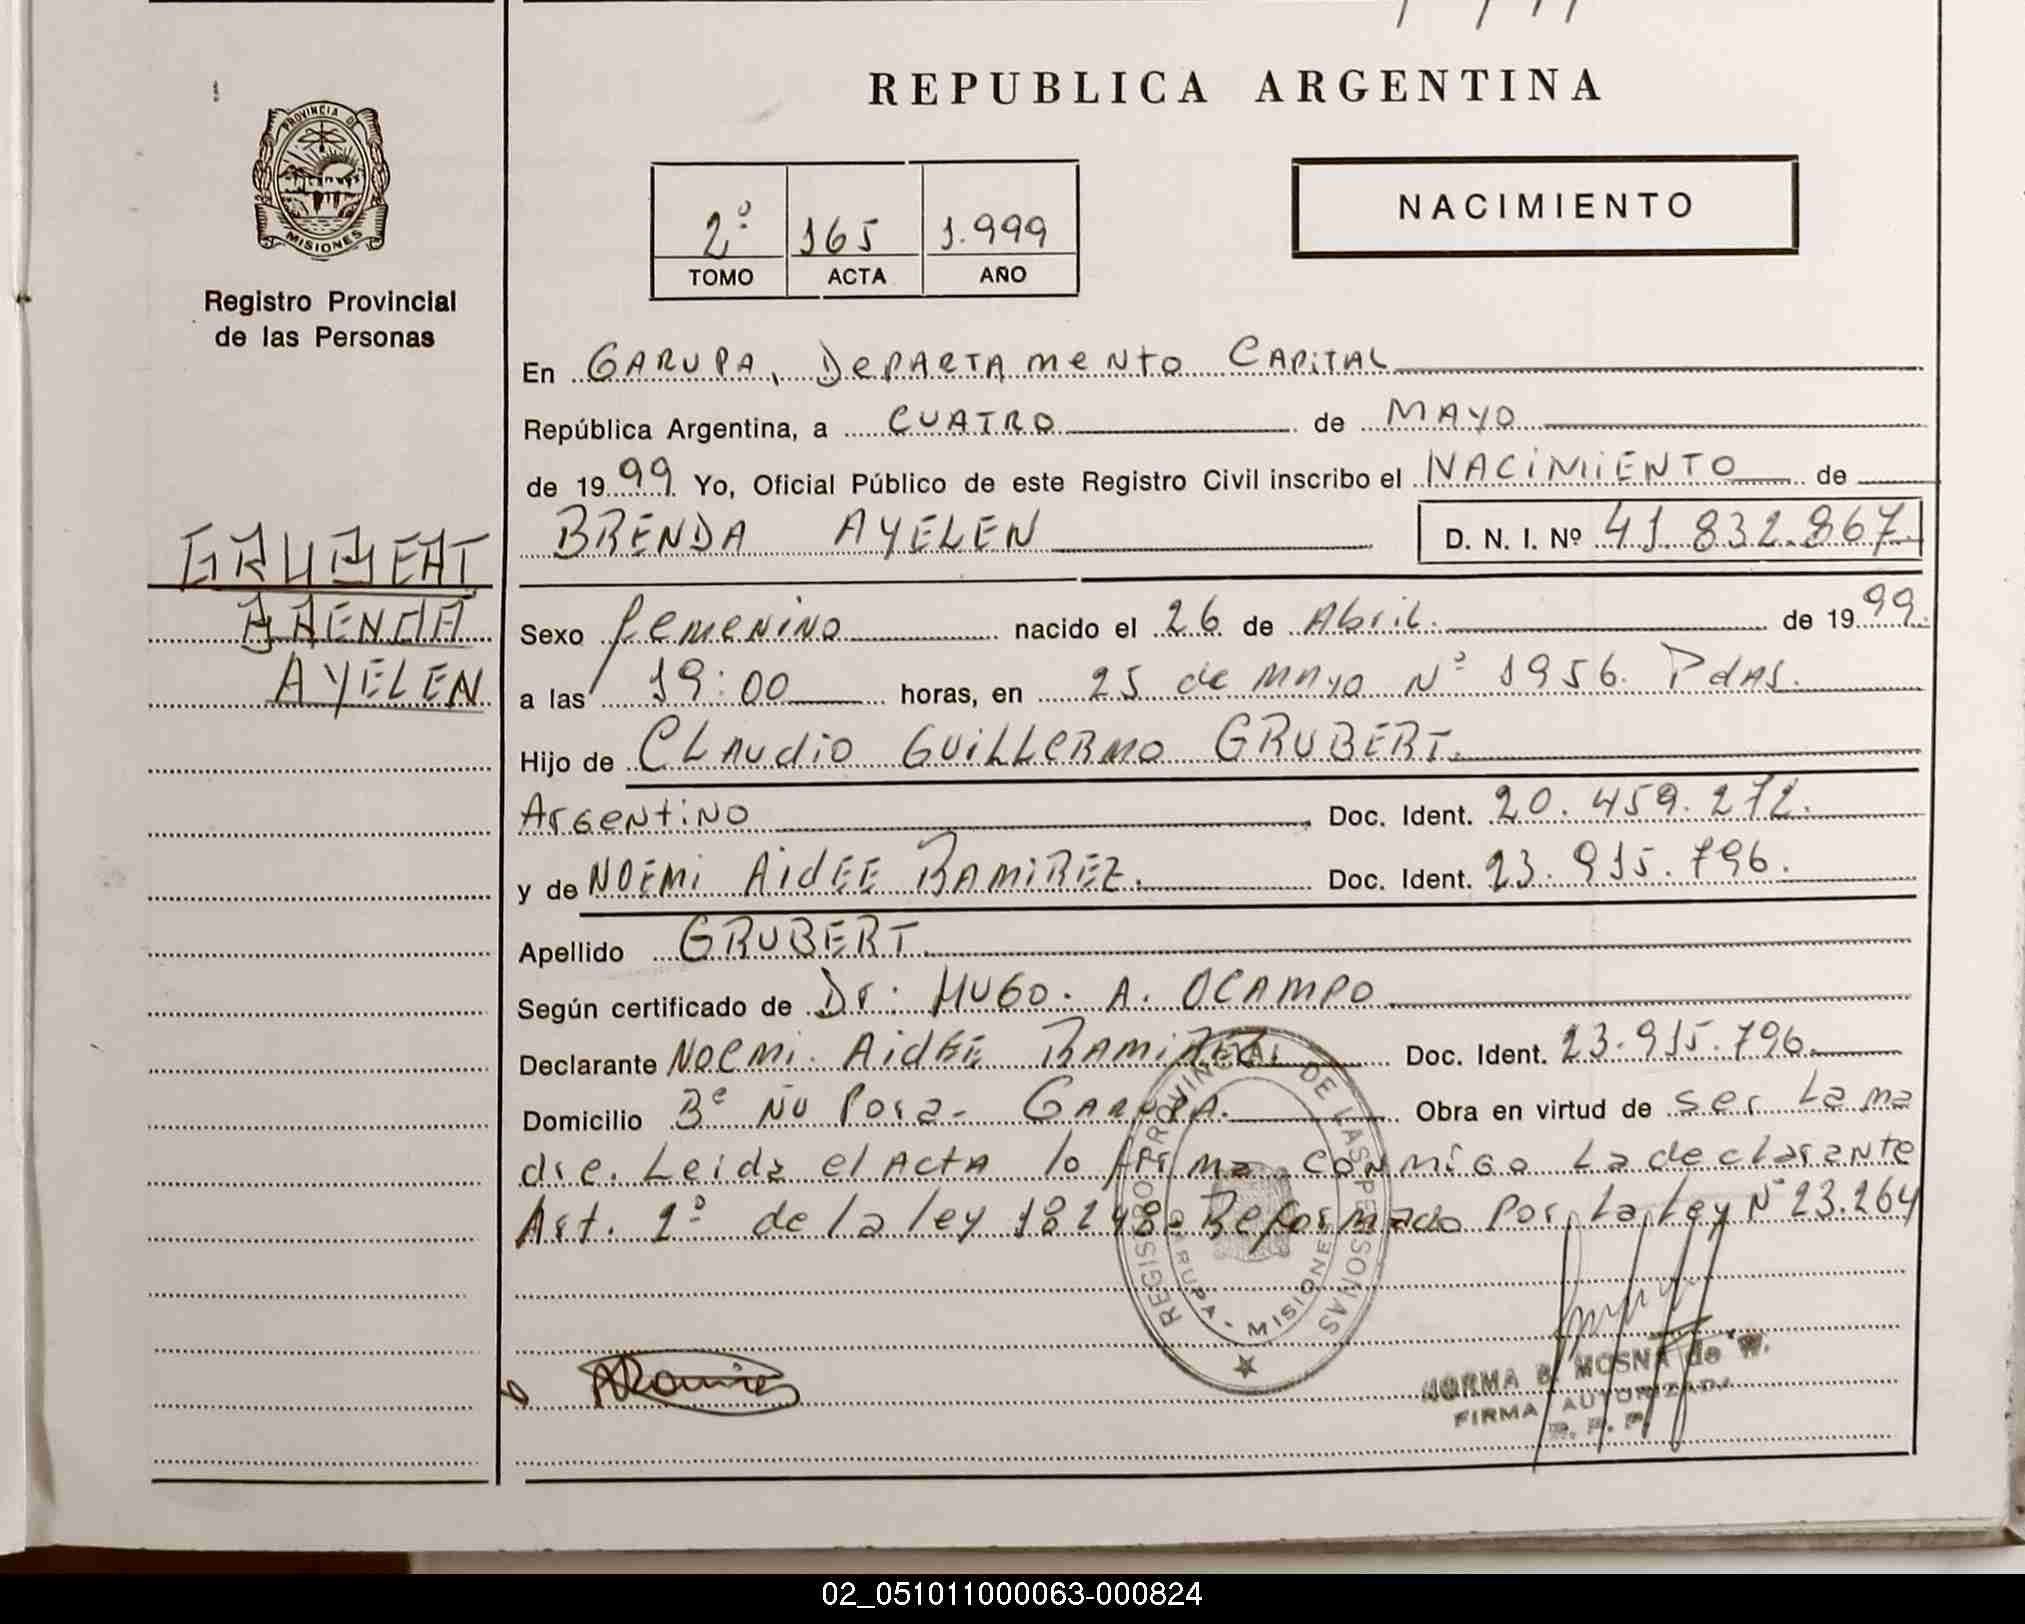 REPUBLICA ARGENTINA
PROVINCIA DE
MISIONES
Registro Provincial
de las Personas
2º 165 1.999
TOMO ACTA AÑO
NACIMIENTO
En GARUPA, DEPARTAMENTO CAPITAL
República Argentina, a CUATRO de MAYO
de 1999 Yo, Oficial Público de este Registro Civil inscribo el NACIMIENTO de
BRENDA AYELEN D. N. I. Nº 41.832.867.
GRUBERT
BRENDA
AYELEN
Sexo femenino nacido el 26 de Abril. de 1999.
a las 19:00 horas, en 25 de mayo Nº 1956. Pdas.
Hijo de CLAUDIO GUILLERMO GRUBERT.
Argentino Doc. Ident. 20.459.272.
y de NOEMI AIDEE RAMIREZ. Doc. Ident. 23.915.796.
Apellido GRUBERT.
Según certificado de Dr. HUGO. A. OCAMPO
Declarante NOEMI. AIDEE RAMIREZ. Doc. Ident. 23.915.796.
Domicilio Bº ÑU Pora- GARUPA. Obra en virtud de ser La ma
dre. Leida el ACTA lo firma conmigo La declarante
Art. 2º de la ley 18248- Reformado Por La Ley Nº 23.264
REGISTRO PROVINCIAL DE LAS PERSONAS
GARUPA - MISIONES
ARamirez
NORMA B. MOSNA de W.
FIRMA AUTORIZADA
R. P. P.
02_051011000063-000824